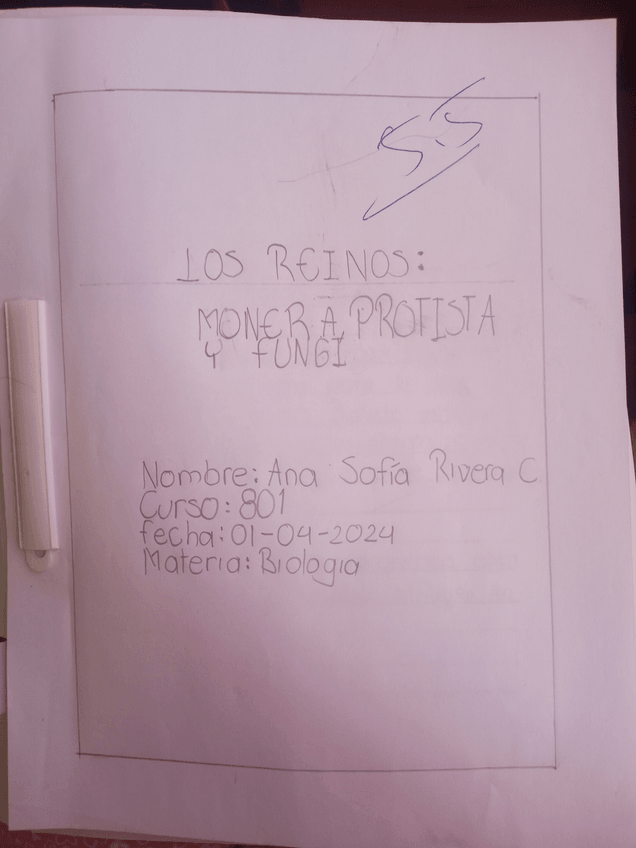 5.5
LOS REINOS:
MONERA, PROTISTA
Y FUNGI
Nombre: Ana Sofía Rivera C.
Curso: 801
fecha: 01-04-2024
Materia: Biologia